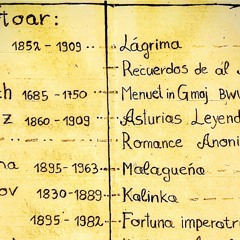 toar:
1852 - 1909 ... Lágrima
Recuerdos de al
ch 1685 - 1750 Menuet in G maj BWV
z 1860 - 1909 Asturias Leyend
Romance Anoni
na 1895 - 1963 Malagueña
ov 1830 - 1889 Kalinka
1895 - 1982 Fortuna imperatr